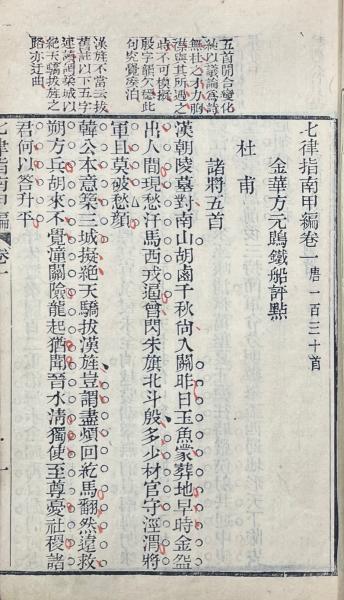 七律指南甲編卷一 唐一百三十首
金華方元鵾鐵船評點
杜甫
諸將五首
漢朝陵墓對南山胡鹵千秋尙入關昨日玉魚蒙葬地早時金盌
出人間現愁汗馬西戎逼曾閃朱旗北斗殷多少材官守涇渭將
軍且莫破愁顏
韓公本意築三城擬絕天驕拔漢旌豈謂盡煩回紇馬翻然遠救
朔方兵胡來不覺潼關險龍起猶聞晉水清獨使至尊憂社稷諸
君何以答升平
五首開合變化
純以議論爲詩
無杜之才力胸
襟與其所遇之
時不可模擬
殷字韻欠愜此
句究覺湊泊
漢旌不當云拔
舊註以下五字
連讀謂築城以
絕天驕拔旌之
路亦迂曲
七律指南甲編 卷一